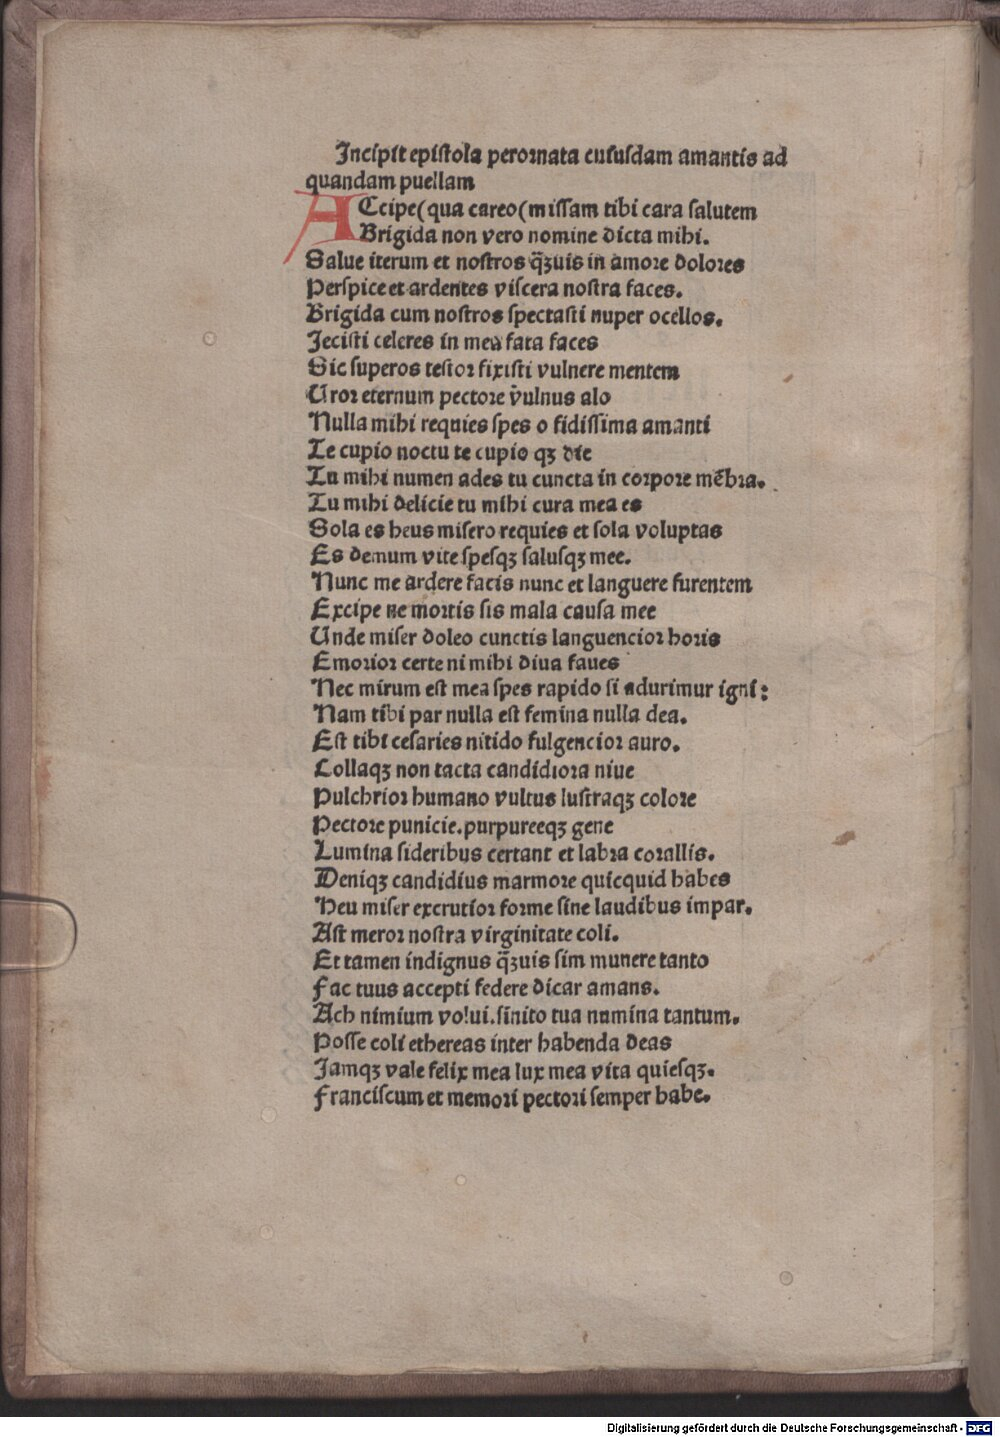 Incipit epistola perornata cuiusdam amantis ad
quandam puellam
ACcipe(qua careo(missam tibi cara salutem
Brigida non vero nomine dicta mihi.
Salue iterum et nostros q̄ꝫuis in amore dolores
Perspice et ardentes viscera nostra faces.
Brigida cum nostros spectasti nuper ocellos.
Jecisti celeres in mea fata faces
Sic superos testor fixisti vulnere mentem
Uror eternum pectore vulnus alo
Nulla mihi requies spes o fidissima amanti
Te cupio noctu te cupio qꝫ die
Tu mihi numen ades tu cuncta in corpore mēbra.
Tu mihi delicie tu mihi cura mea es
Sola es heus misero requies et sola voluptas
Es demum vite spesqꝫ salusqꝫ mee.
Nunc me ardere facis nunc et languere furentem
Excipe ne mortis sis mala causa mee
Unde miser doleo cunctis languencior horis
Emorior certe ni mihi diua faues
Nec mirum est mea spes rapido si adurimur igni:
Nam tibi par nulla est femina nulla dea.
Est tibi cesaries nitido fulgencior auro.
Collaqꝫ non tacta candidiora niue
Pulchrior humano vultus lustraqꝫ colore
Pectore punicie.purpureeqꝫ gene
Lumina sideribus certant et labra corallis.
Deniqꝫ candidius marmore quicquid habes
Heu miser excrutior forme sine laudibus impar.
Ast meror nostra virginitate coli.
Et tamen indignus q̄ꝫuis sim munere tanto
Fac tuus accepti federe dicar amans.
Ach nimium volui.sinito tua numina tantum.
Posse coli ethereas inter habenda deas
Jamqꝫ vale felix mea lux mea vita quiesqꝫ.
Franciscum et memori pectori semper habe.
Digitalisierung gefördert durch die Deutsche Forschungsgemeinschaft - DFG